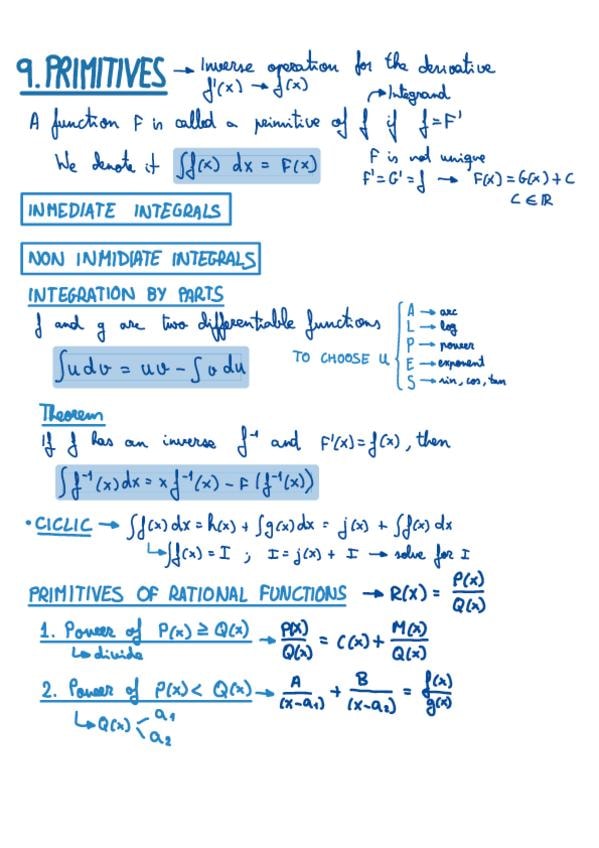 9. PRIMITIVES → Inverse operation for the derivative
f'(x) → f(x)
→ Integrand
A function F is called a primitive of f if f = F'
We denote it ∫f(x) dx = F(x)
F is not unique
F' = G' = f → F(x) = G(x) + C
C ∈ ℝ
INMEDIATE INTEGRALS
NON INMIDIATE INTEGRALS
INTEGRATION BY PARTS
f and g are two differentiable functions
∫u dv = uv - ∫v du
TO CHOOSE u
A → arc
L → log
P → power
E → exponent
S → sin, cos, tan
Theorem
If f has an inverse f⁻¹ and F'(x) = f(x), then
∫f⁻¹(x) dx = x f⁻¹(x) - F(f⁻¹(x))
• CICLIC → ∫f(x) dx = h(x) + ∫g(x) dx = j(x) + ∫f(x) dx
↳ ∫f(x) = I ; I = j(x) + I → solve for I
PRIMITIVES OF RATIONAL FUNCTIONS → R(x) = P(x)/Q(x)
1. Power of P(x) ≥ Q(x) → P(x)/Q(x) = C(x) + M(x)/Q(x)
↳ divide
2. Power of P(x) < Q(x) → A/(x-a₁) + B/(x-a₂) = f(x)/g(x)
↳ Q(x) < a₁
a₂